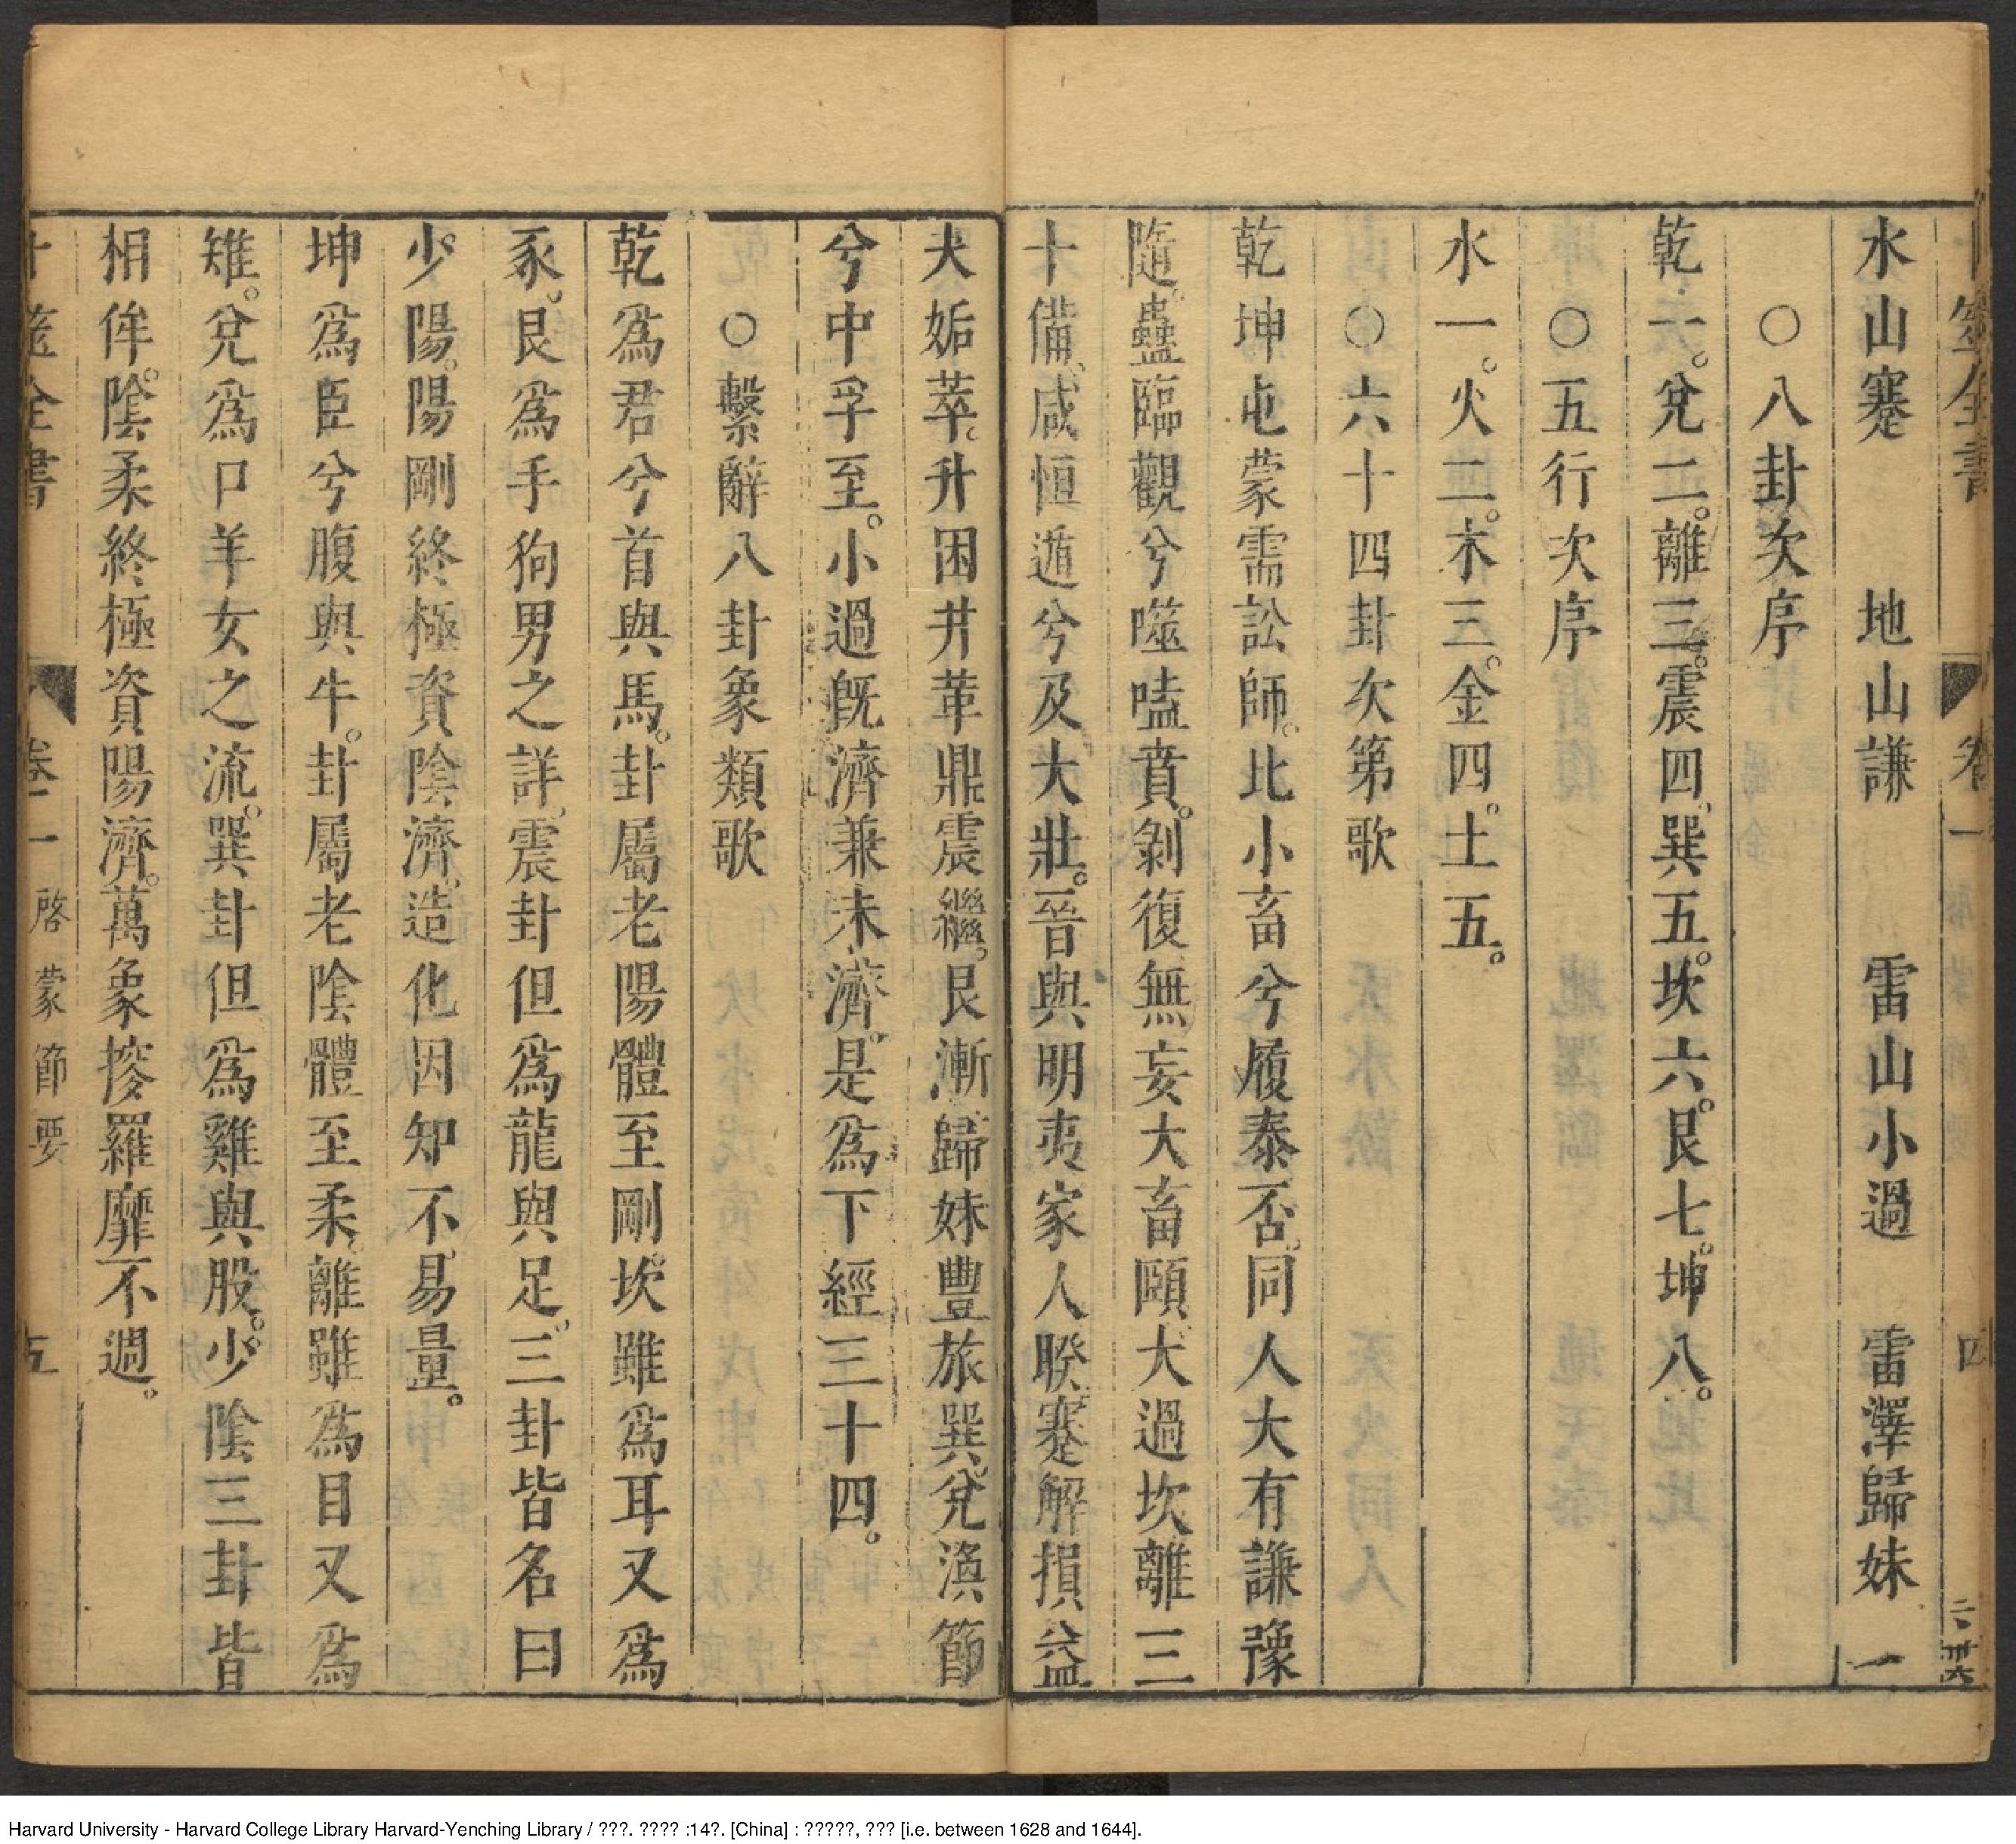 卜筮全書 卷一 四
水山蹇 地山謙 雷山小過 雷澤歸妹
○八卦次序
乾一。兌二。離三。震四。巽五。坎六。艮七。坤八。
○五行次序
水一。火二。木三。金四。土五。
○六十四卦次第歌
乾坤屯蒙需訟師。比小畜兮履泰否。同人大有謙豫
隨。蠱臨觀兮噬嗑賁。剝復無妄大畜頤大過坎離三
十備。咸恒遁兮及大壯。晉與明夷家人睽蹇解損益
夬姤萃。升困井革鼎震繼。艮漸歸妹豐旅巽。兌渙節
兮中孚至。小過既濟兼未濟。是為下經三十四。
○繫辭八卦象類歌
乾為君兮首與馬。卦屬老陽體至剛。坎雖為耳又為
豕。艮為手狗男之詳。震卦但為龍與足。三卦皆名曰
少陽。陽剛終極資陰濟。造化因知不易量。
坤為臣兮腹與牛。卦屬老陰體至柔。離雖為目又為
雉。兌為口羊女之流。巽卦但為雞與股。少陰三卦皆
相侔。陰柔終極資陽濟。萬象摻羅靡不週。
卜筮全書 卷一 啓蒙節要 五
Harvard University - Harvard College Library Harvard-Yenching Library / ???. ???? :14?. [China] : ?????, ??? [i.e. between 1628 and 1644].